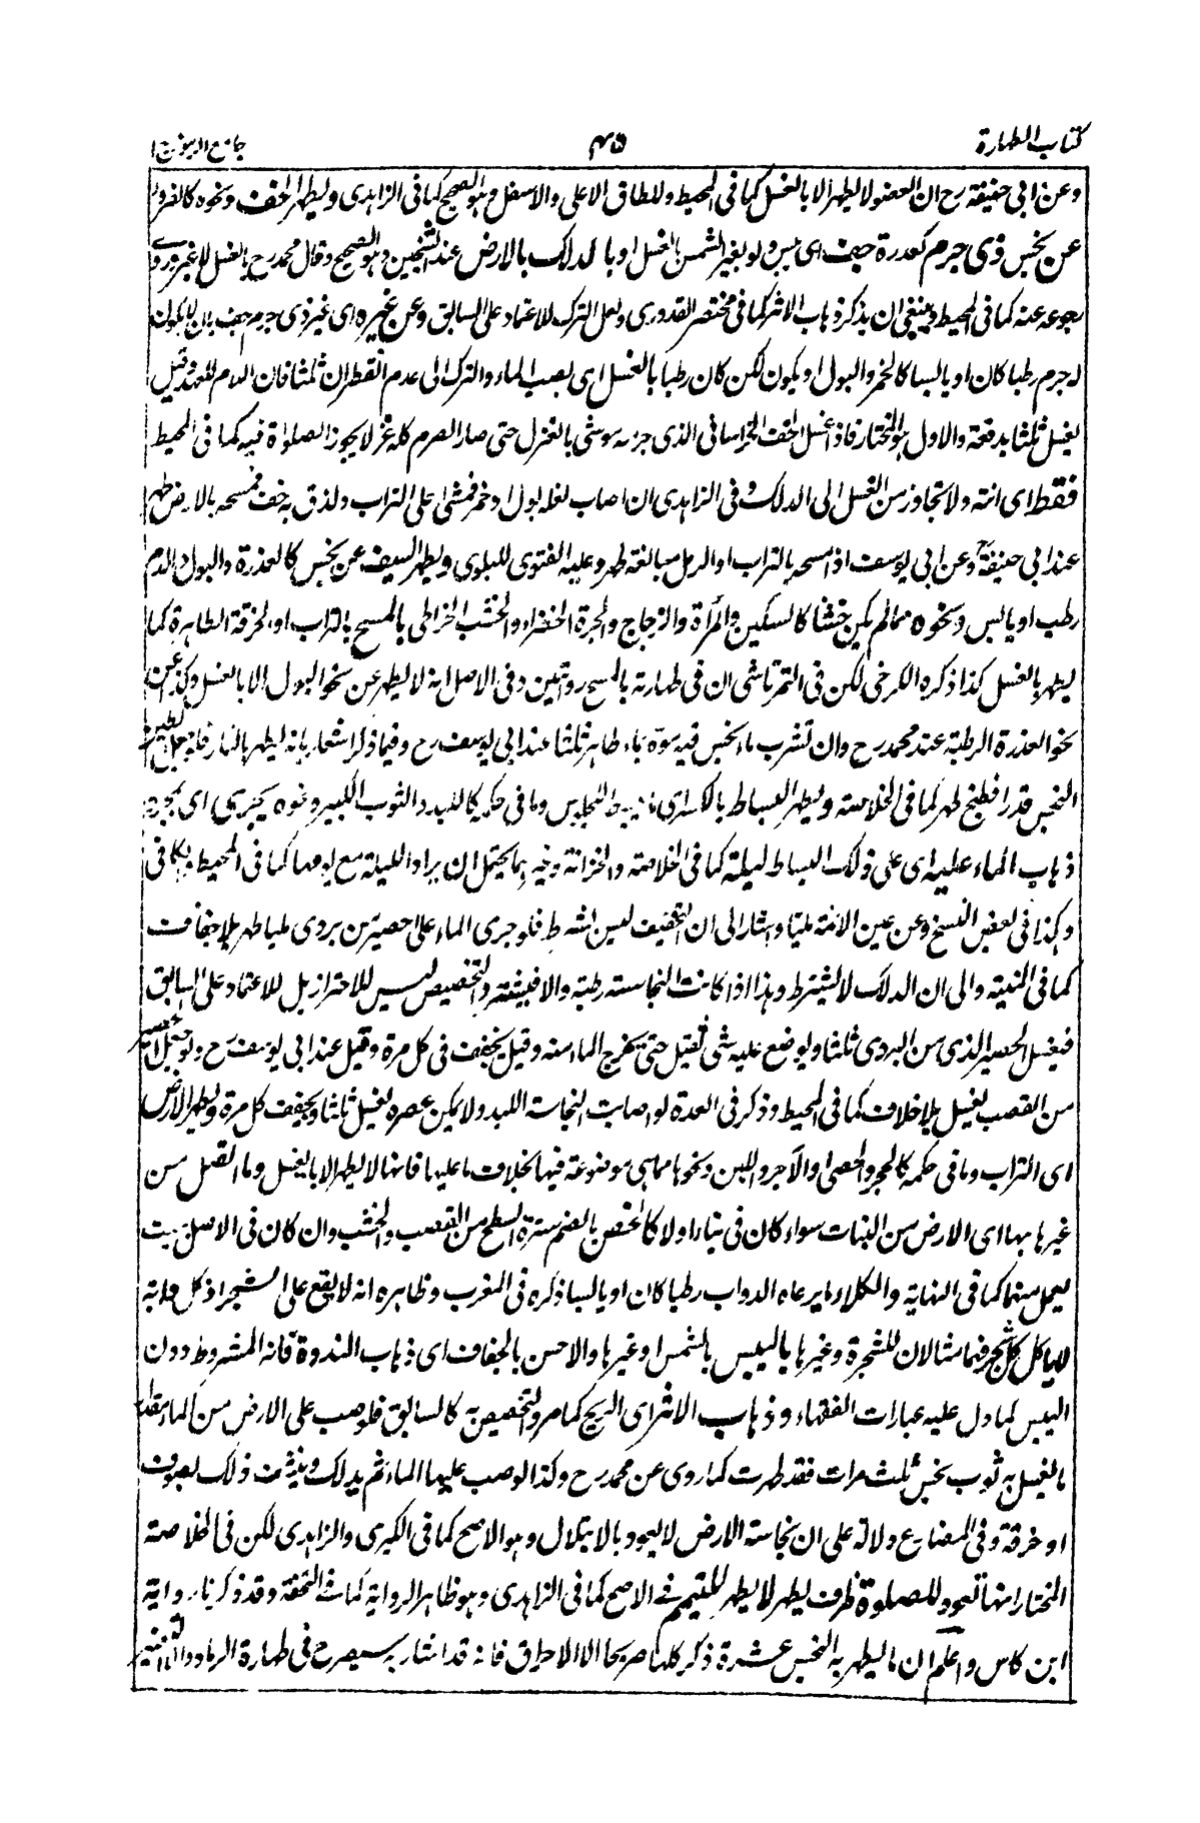 كتاب الطهارة
٤٥
جامع الرموز ج ١
وعن ابى حنيفة رح ان العضو لا يطهر الا بالغسل كما فى المحيط وللطاق الاعلى والاسفل وهو الصحيح كما فى الزاهدى ويطهر الخف ونحوه كالفرو
عن نجس ذى جرم كعذرة جف اى يبس ولو بغير الشمس بالغسل او بالدلك بالارض عند الشيخين وهو الصحيح وقال محمد رح بالغسل لا غير وروى
رجوعه عنه كما فى المحيط وينبغى ان يذكر ذهاب الاثر كما فى مختصر القدورى ولعل الترك للاعتماد على السابق وعن غيره اى غير ذى جرم جف بان لا يكون
له جرم رطبا كان او يابسا كالخمر والبول او يكون لكن كان رطبا بالغسل اى بصب الماء والترك الى عدم القطران ثلثا فان اللام للعهد وقيل
يغسل ثلثا بدفعة والاول هو المختار فاذا غسل الخف الخراسانى الذى جرمه موشى بالغزل حتى صار الصرم كله غزلا يجوز الصلوة فيه كما فى المحيط
فقط اى انته ولا تتجاوز من الغسل الى الدلك وفى الزاهدى ان اصاب نعله بول او خمر فمشى على التراب ولزق به خف فمسحه بالارض طهر
عند ابى حنيفة وعن ابى يوسف اذا مسحه بالتراب او الرمل مبالغة طهر وعليه الفتوى للبلوى ويطهر السيف عن نجس كالعذرة والبول والدم
رطب او يابس ونحوه مما لم يكن خشنا كالسكين والمرأة والزجاج والجرة الخضراء والخشب الخراطى بالمسح بالتراب او الخرقة الطاهرة كما
يطهر بالغسل كذا ذكره الكرخى لكن فى التمرتاشى ان فى طهارته بالمسح روايتين وفى الاصل انه لا يطهر عن نحو البول الا بالغسل وكذا عن
نحو العذرة الرطبة عند محمد رح وان تشرب ماء نجس فيه يموّه بماء طاهر ثلثا عند ابى يوسف رح وفيما ذكر اشعار بانه يطهر بالنار فلو جعل الطين
النجس قدرا فطبخ طهر كما فى الخلاصة ويطهر البساط بالكسر اى وما فى حكمه كاللبد والثوب الكبير ونحوه بجرى اى بمجرد
ذهاب الماء عليه اى على ذلك البساط ليلة كما فى الخلاصة والخزانة وفيه يحتمل ان يراد الليلة مع يومها كما فى المحيط والكافى
وكذا فى بعض النسخ وعن عين الائمة مليّا واشار الى ان التجفيف ليس بشرط فلو جرى الماء على حصير من بردى مليا طهر بلا جفاف
كما فى المنية والى ان الدلك لا يشترط وهذا اذا كانت النجاسة رطبة والا فيشترط والتخصيص ليس للاحتراز بل للاعتماد على السابق
فيغسل الحصير الذى من البردى ثلثا ويوضع عليه شئ ثقيل حتى يخرج الماء منه وقيل يجفف فى كل مرة وقيل عند ابى يوسف رح ولو جعل الحصير
من القصب يغسل بلا خلاف كما فى المحيط وذكر فى العدة لو اصابت النجاسة اللبد ولا يمكن عصره يغسل ثلثا ويجفف كل مرة ويطهر الارض
اى التراب وما فى حكمه كالحجر والحصى والآجر واللبن ونحوها مما هى موضوعة فيها بخلاف ما عليها فانها لا يطهر الا بالغسل وما اتصل من
غيرها بها اى الارض من النبات سواء كان فى بناء او لا كالخص بالضم سترة السطح من القصب والخشب وان كان فى الاصل بيت
يعمل منهما كما فى النهاية والكلاء ما يرعاه الدواب رطبا كان او يابسا ذكره فى المغرب وظاهره انه لا يقع على الشجر اذ كل دابة
لا يأكل كل شجر فهما مثالان للشجرة وغيرها باليبس بالشمس او غيرها والاحسن بالجفاف اى ذهاب الندوة فانه المشروط دون
اليبس كما دل عليه عبارات الفقهاء وذهاب الاثر اى الريح كما مر والتخصيص به كالسابق فلو صب على الارض من الماء مقدار
ما يغسل به ثوب نجس ثلث مرات فقد طهرت كما روى عن محمد رح وكذا لو صب عليها الماء ثم يدلك وينشف ذلك بصوف
او خرقة وفى المضارع دلالة على ان نجاسة الارض لا يعود بالابتلال وهو الاصح كما فى الكبرى والزاهدى لكن فى الخلاصة
المختار انها تعود للصلوة ظرف يطهر لا يطهر للتيمم فى الاصح كما فى الزاهدى وهو ظاهر الرواية كما فى التحفة وقد ذكرنا رواية
ابن كاس واعلم ان ما يطهر به النجس عشرة ذكر كلها صريحا الا الاحراق فانه قد اشار به سيصرح فى طهارة الرماد